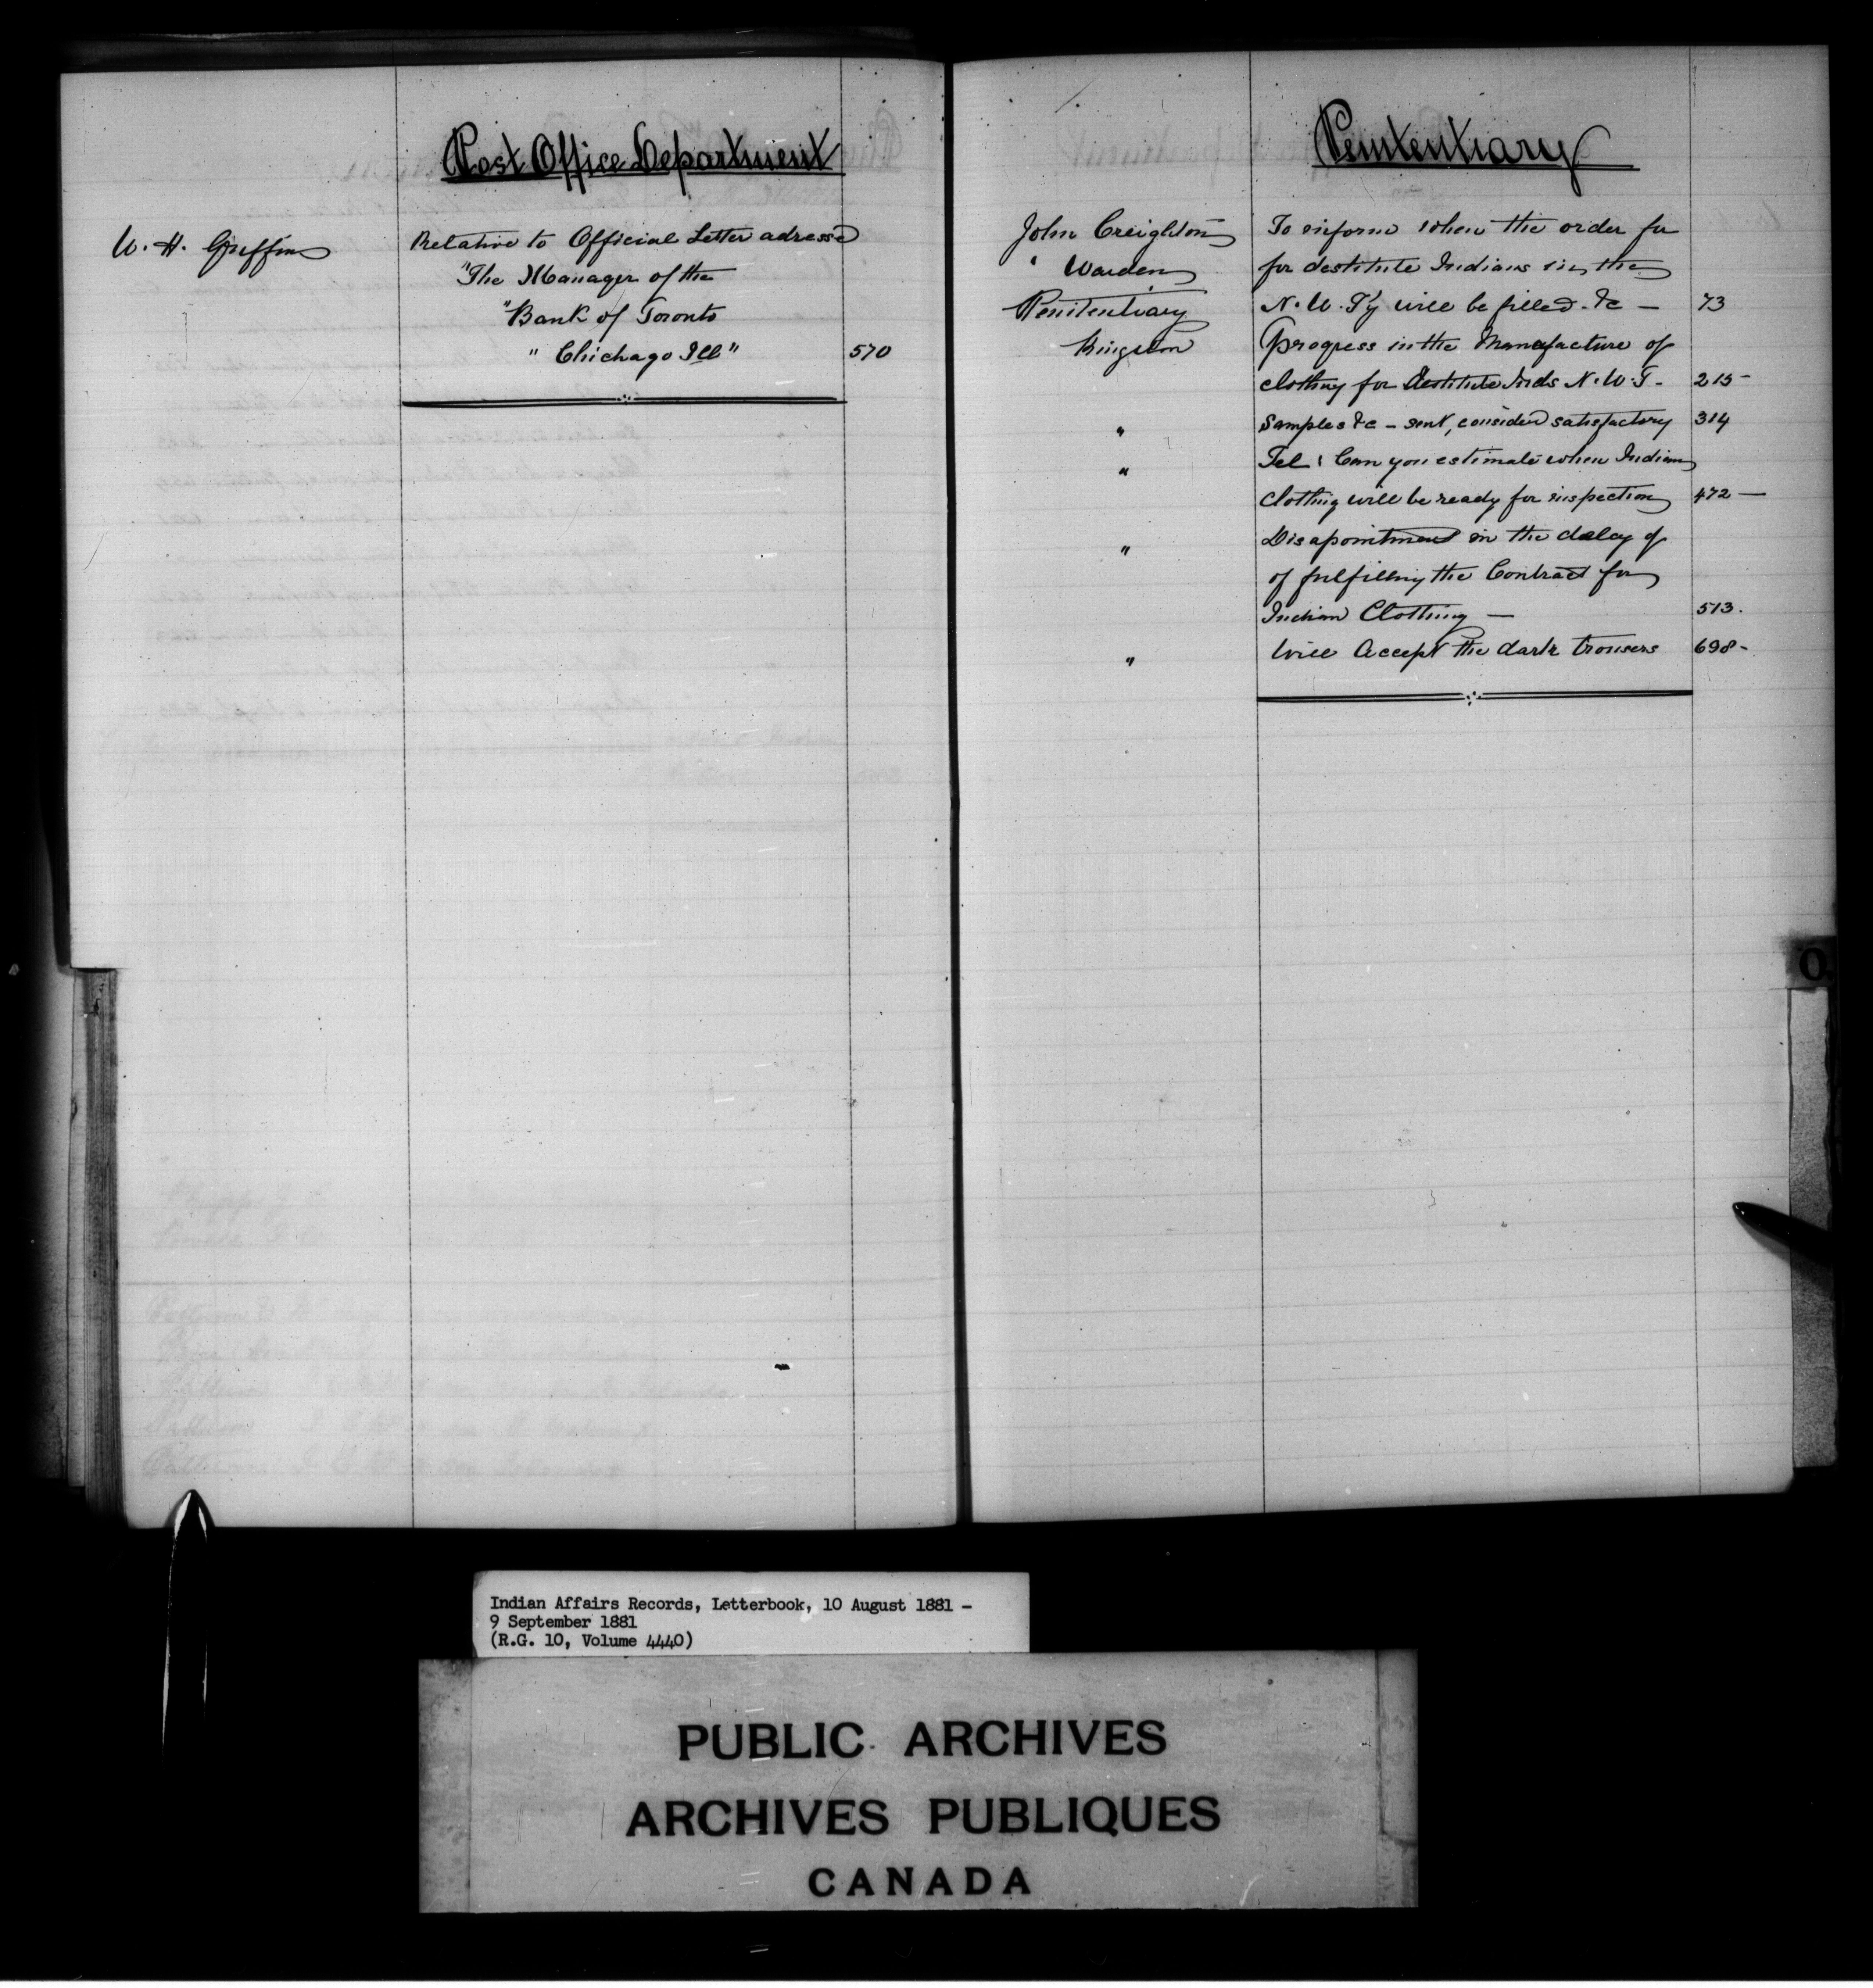 Post Office Department
W. H. Griffin Relative to Official Letter adressed
"The Manager of the
"Bank of Toronto
" Chichago Ill" 570
Penitentiary
John Creighton To inform when the order for
" Warden for destitute Indians in the
Penitentiary N. W. T'y will be filled. &c — 73
Kingston Progress in the Manufacture of
clothing for destitute Inds N. W. T. 215 -
" Samples &c - sent, considered satisfactory 314
" Tel: Can you estimate when Indian
clothing will be ready for inspection 472 —
" Disapointment in the delay of
of fulfilling the Contract for
Indian Clothing — 513.
" Will accept the dark trousers 698 -
O
Indian Affairs Records, Letterbook, 10 August 1881 -
9 September 1881
(R.G. 10, Volume 4440)
PUBLIC ARCHIVES
ARCHIVES PUBLIQUES
CANADA